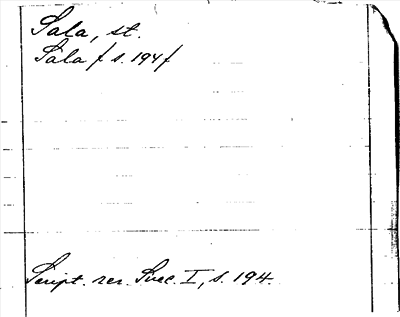 Sala, st.
Sala f s. 194 f
Script. rer. Svec. I, s. 194.